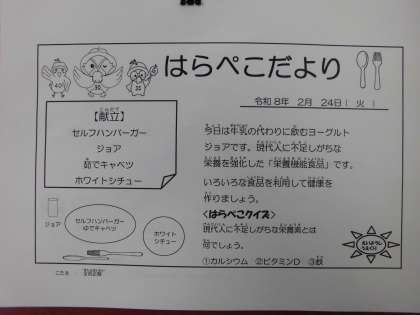 はらぺこだより
令和8年 2月 24日( 火 )
【献立】
セルフハンバーガー
ジョア
茹でキャベツ
ホワイトシチュー
今日は牛乳の代わりに飲むヨーグルト
ジョアです。現代人に不足しがちな
栄養を強化した「栄養機能食品」です。
いろいろな食品を利用して健康を
作りましょう。
<はらぺこクイズ>
現代人に不足しがちな栄養素とは
何でしょう。
①カルシウム ②ビタミンD ③鉄
ジョア
セルフハンバーガー
ゆでキャベツ
ホワイト
シチュー
こたえ :